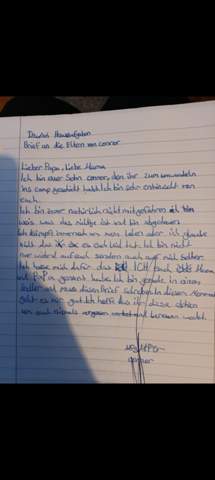 Deutsch Hausaufgaben
Brief an die Eltern von connor
Lieber Papa, Liebe Mama
Ich bin euer Sohn connor, den ihr zum umwandeln
ins camp geschickt habt. Ich bin sehr enttäuscht von
euch.
Ich bin immer natürlich nicht mit gefahren
weis was das richtige ist und bin abgehauen
Ich kämpft innerlich um mein Leben aber ich glaube
nicht das es euch Leid tut. Ich bin nicht
nur wütend auf euch sondern auch auf mich selber.
Ich hasse mich dafür das ICH euch Mama
und Papa genannt habe. Ich bin gerade in einem
und muss diesen Brief schreiben. In diesem Moment
geht es mir gut. Ich hoffe das ihr diese
und niemals vergessen werdet und bereuen werdet.
connor